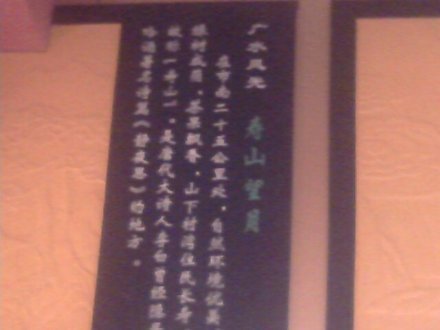 广水风光
寿山望月
在市南二十五公里处,自然环境优美
绿树成荫,茶果飘香,山下村湾住民长寿
故称"寿山"。是唐代大诗人李白曾经隐居
吟酒著名诗篇《静夜思》的地方。